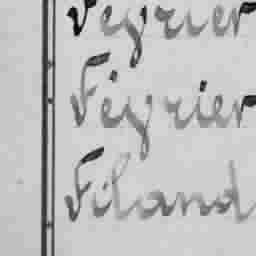 Feyrier
Feyrier
Filand